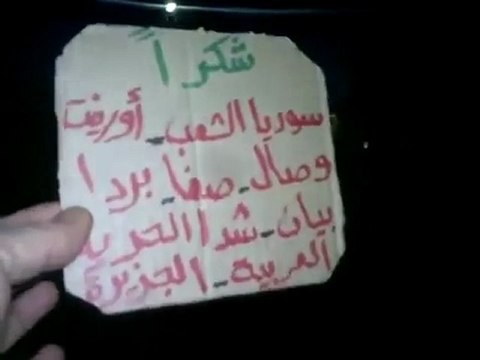 شكراً
سوريا الشعب - أورينت
وصال - صفا - بردا
بيان - شدا الحرية
العربية - الجزيرة